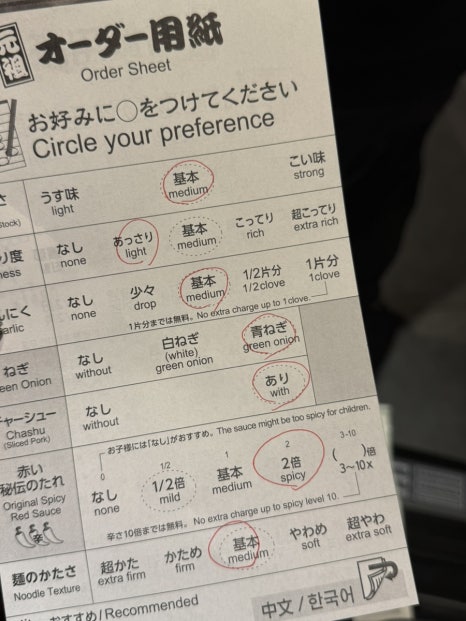 元祖
オーダー用紙
Order Sheet
お好みに○をつけてください
Circle your preference
うす味 基本 こい味
light medium strong
なし あっさり 基本 こってり 超こってり
none light medium rich extra rich
なし 少々 基本 1/2片分 1片分
none drop medium 1/2clove 1clove
1片分までは無料。No extra charge up to 1clove.
ねぎ なし 白ねぎ 青ねぎ
without (white) green onion
green onion
チャーシュー なし あり
Chashu without with
(Sliced Pork)
お子様には「なし」がおすすめ。The sauce might be too spicy for children.
赤い
秘伝のたれ
Original Spicy
Red Sauce
辛
0 1/2 1 2 3~10
なし 1/2倍 基本 2倍 ( )倍
none mild medium spicy 3~10x
辛さ10倍までは無料。No extra charge up to spicy level 10.
麺のかたさ 超かた かため 基本 やわめ 超やわ
Noodle Texture extra firm firm medium soft extra soft
おすすめ/Recommended
中文 / 한국어